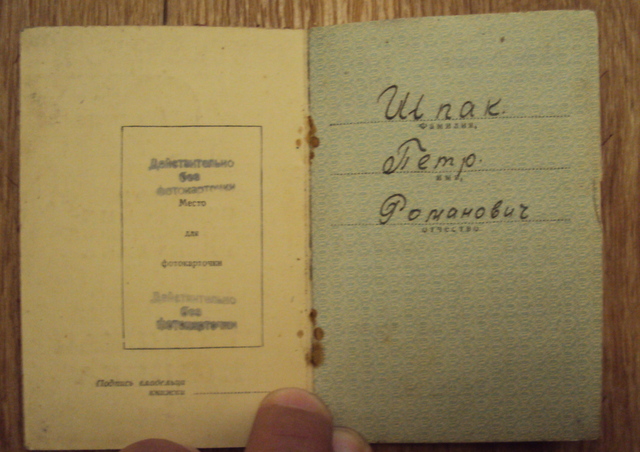 Действительно
без
фотокарточки
Место
для
фотокарточки
Действительно
без
фотокарточки
Подпись владельца
книжки
Шпак.
Фамилия,
Петр.
имя,
Романович
отчество